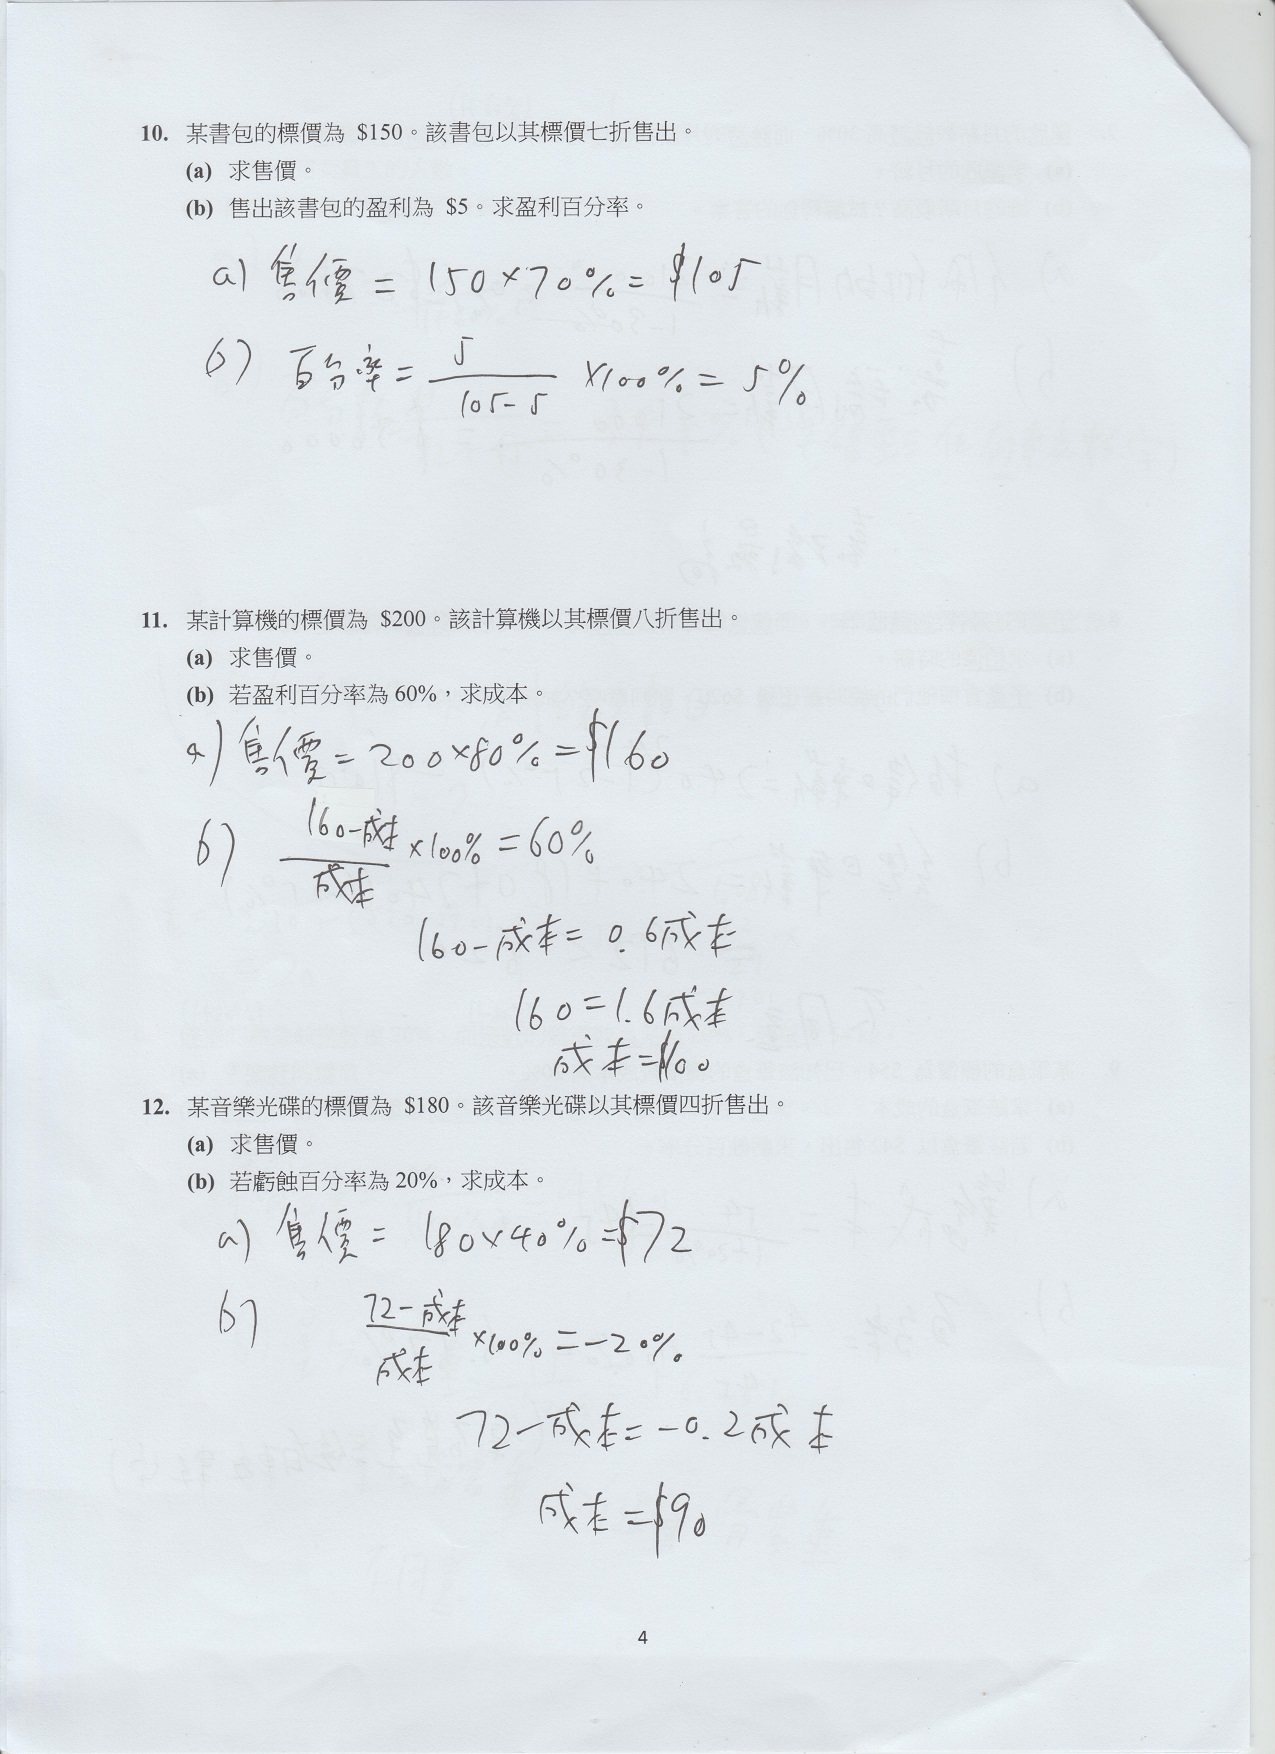 10. 某書包的標價為 $150。該書包以其標價七折售出。
(a) 求售價。
(b) 售出該書包的盈利為 $5。求盈利百分率。
a) 售價 = 150×70% = $105
b) 百分率 = 5/(105-5) ×100% = 5%
11. 某計算機的標價為 $200。該計算機以其標價八折售出。
(a) 求售價。
(b) 若盈利百分率為 60%，求成本。
a) 售價 = 200×80% = $160
b) (160-成本)/成本 ×100% = 60%
160-成本 = 0.6成本
160 = 1.6成本
成本 = $100
12. 某音樂光碟的標價為 $180。該音樂光碟以其標價四折售出。
(a) 求售價。
(b) 若虧蝕百分率為 20%，求成本。
a) 售價 = 180×40% = $72
b) (72-成本)/成本 ×100% = -20%
72-成本 = -0.2成本
成本 = $90
4